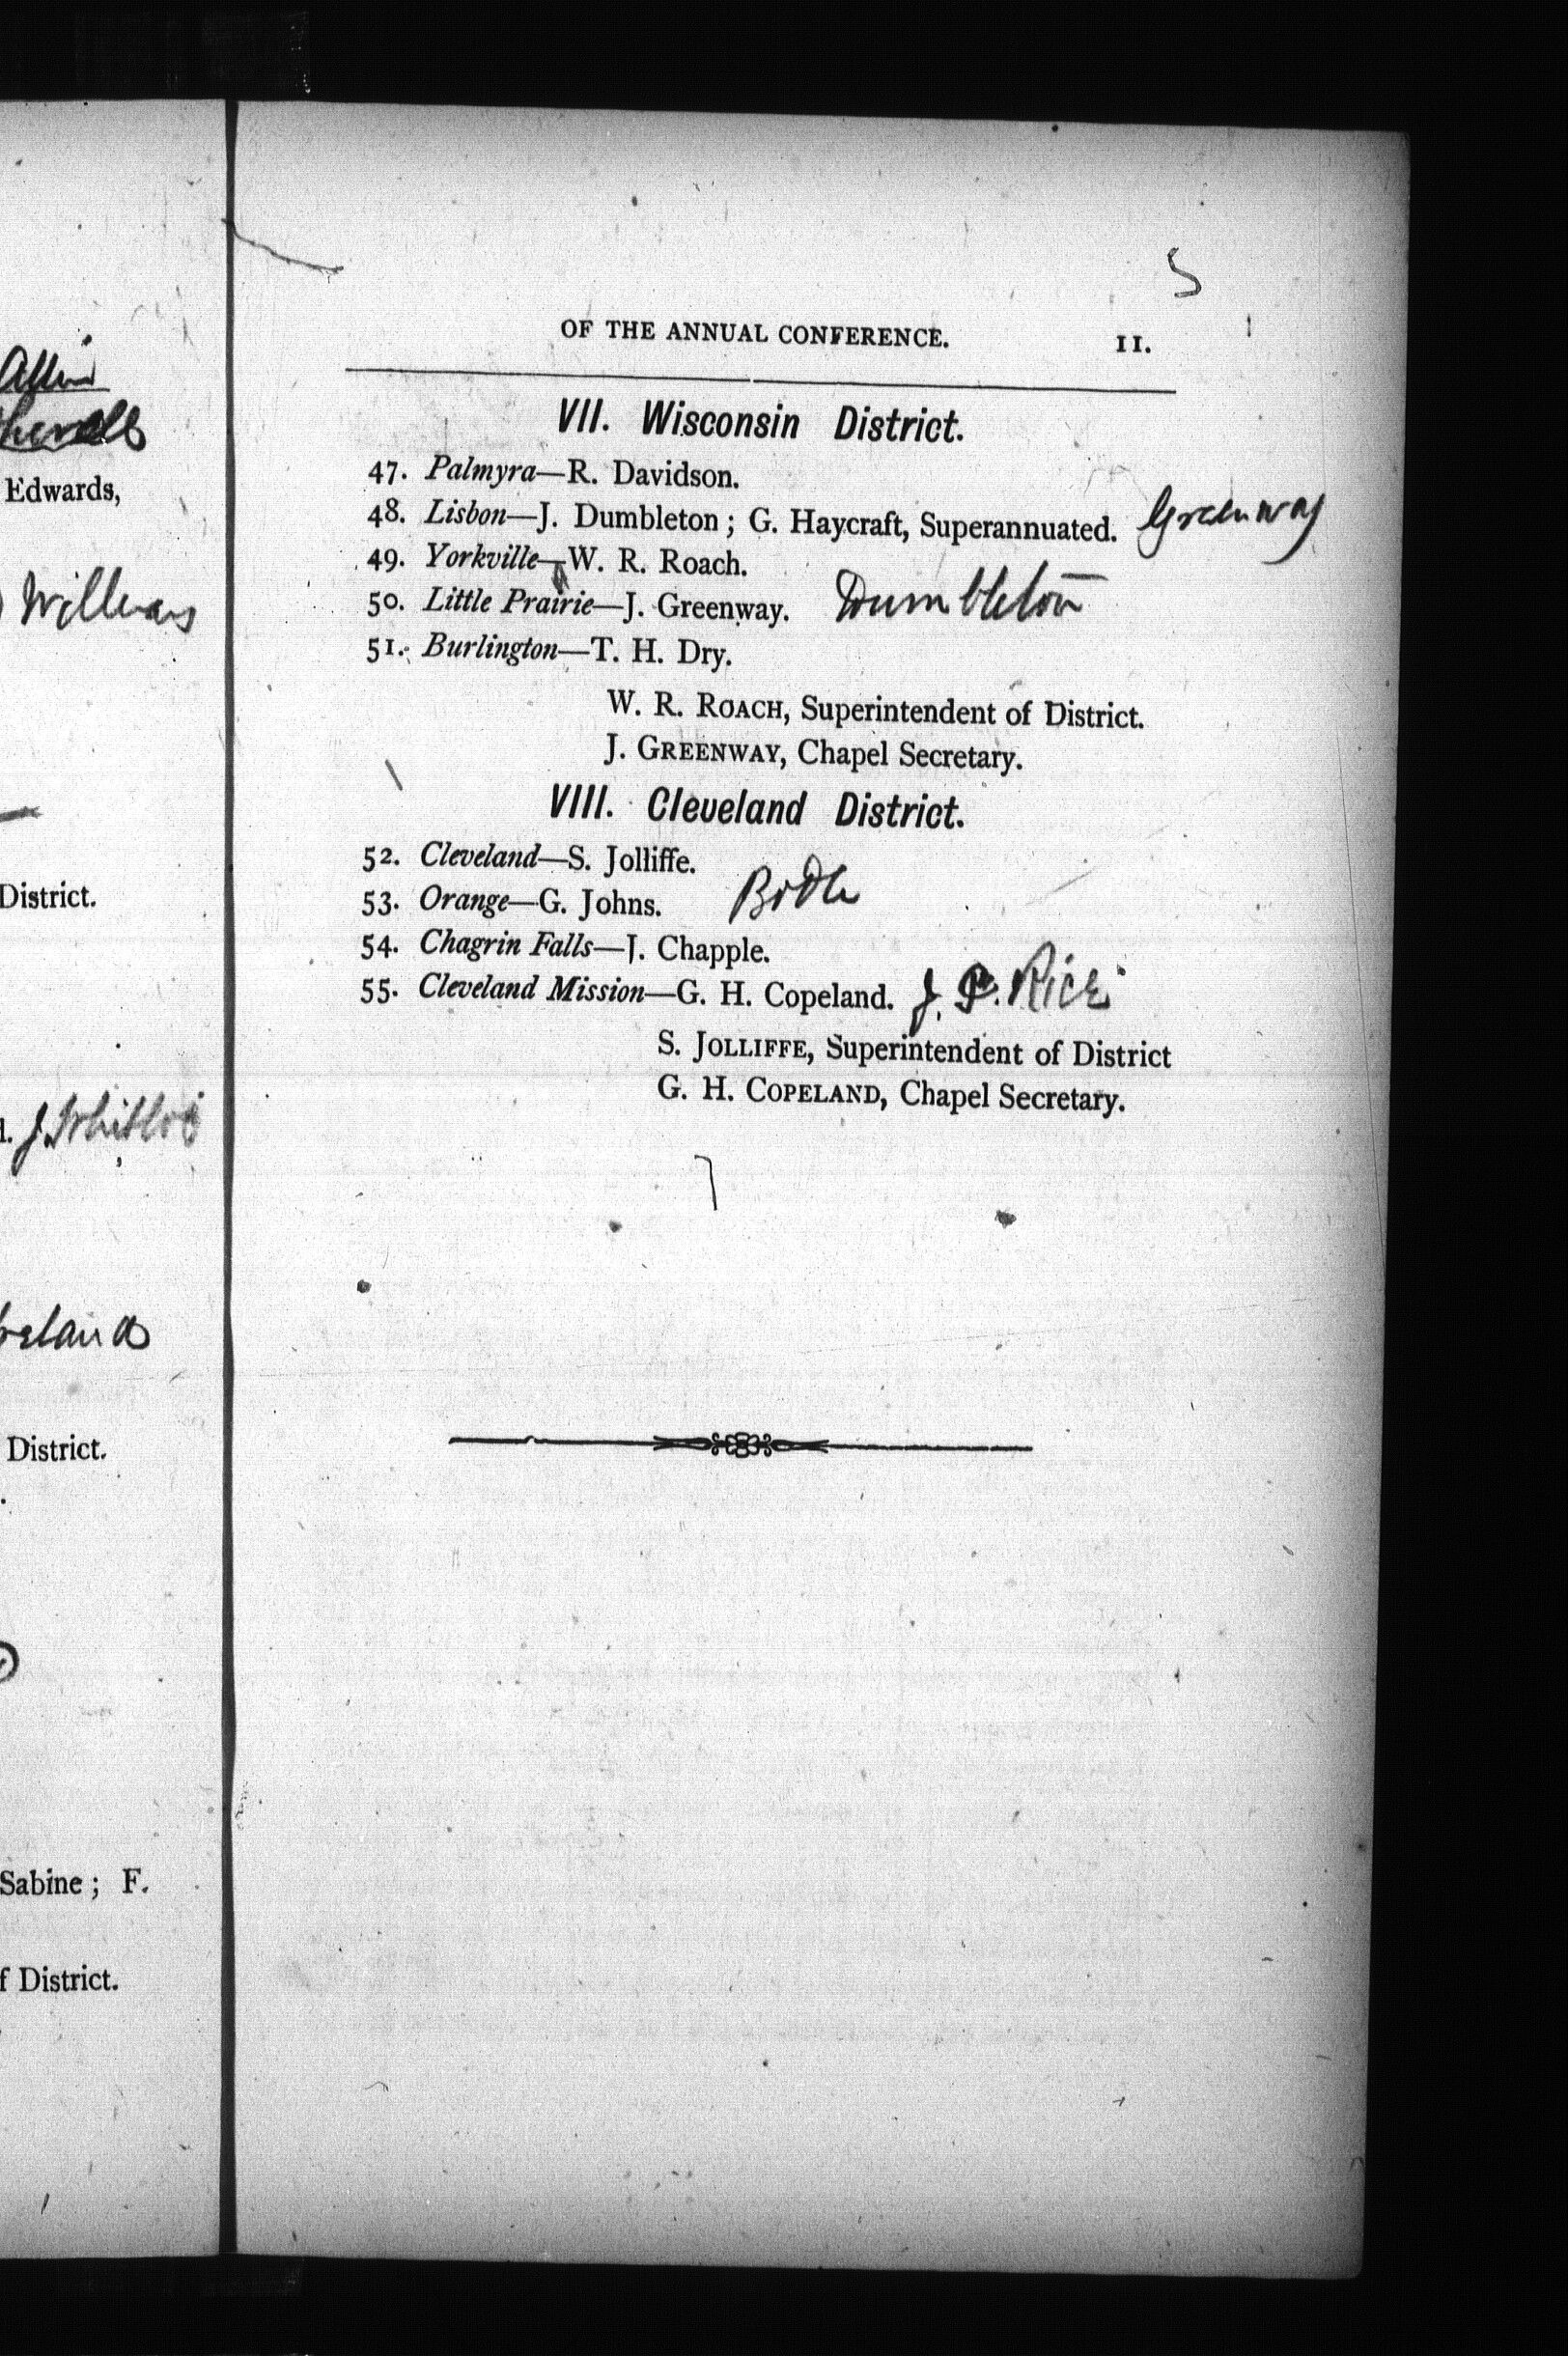 Edwards,
Williams
District.
District.
Sabine; F.
f District.
OF THE ANNUAL CONFERENCE. 11.
VII. Wisconsin District.
47. Palmyra—R. Davidson.
48. Lisbon—J. Dumbleton; G. Haycraft, Superannuated. Greenway
49. Yorkville—W. R. Roach.
50. Little Prairie—J. Greenway. Dumbleton
51. Burlington—T. H. Dry.
W. R. ROACH, Superintendent of District.
J. GREENWAY, Chapel Secretary.
VIII. Cleveland District.
52. Cleveland—S. Jolliffe.
53. Orange—G. Johns.
54. Chagrin Falls—J. Chapple.
55. Cleveland Mission—G. H. Copeland. J. Rice
S. JOLLIFFE, Superintendent of District
G. H. COPELAND, Chapel Secretary.